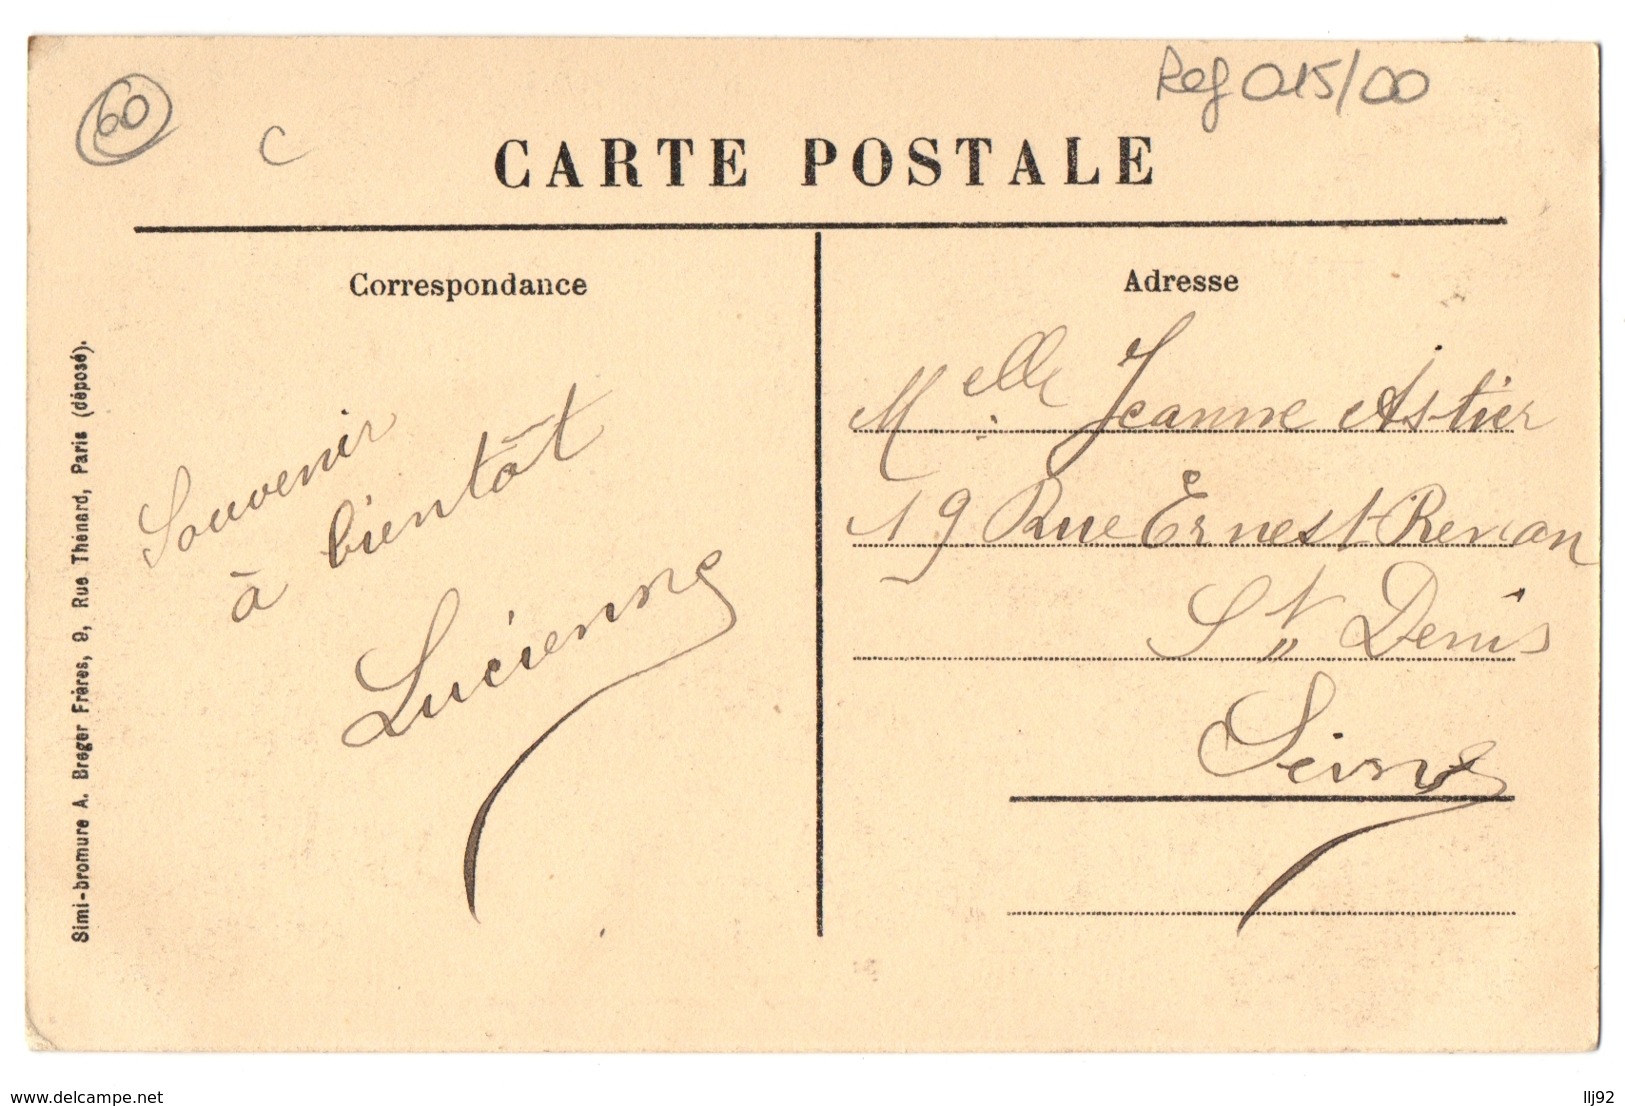 60
C
Ref 015/00
CARTE POSTALE
Correspondance
Souvenir
à bientôt
Lucienne
Adresse
Melle Jeanne Astier
19 Rue Ernest Renan
St Denis
Seine
Simi-bromure A. Breger Frères, 9, Rue Thénard, Paris (déposé).
www.delcampe.net
llj92